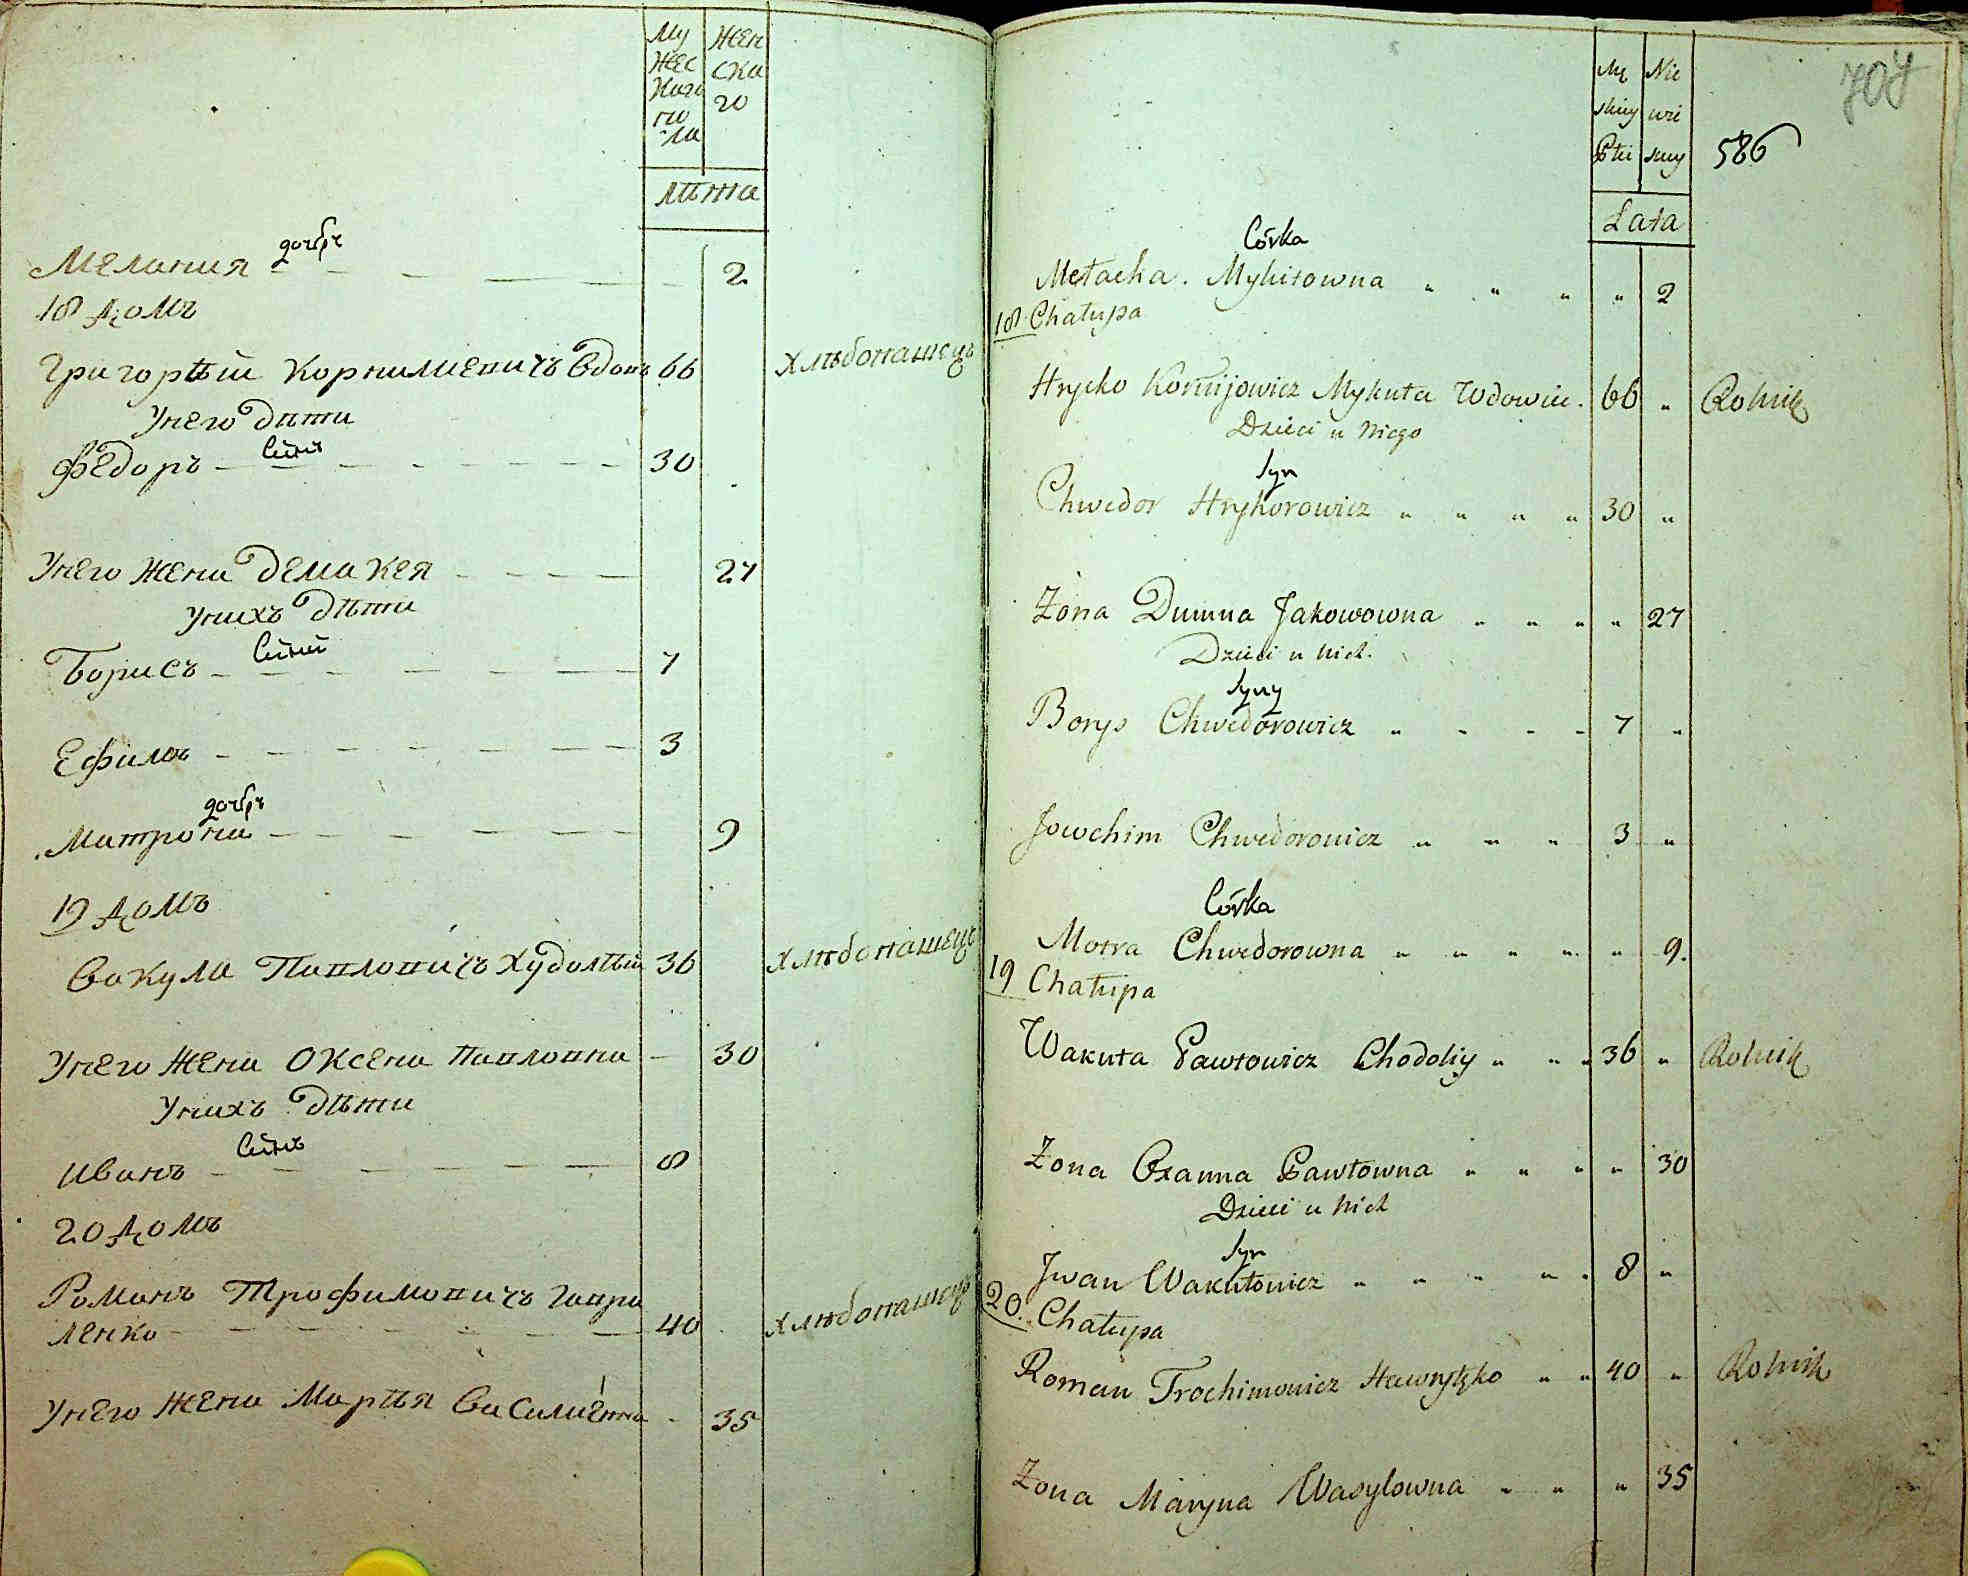 Му Жен
жес ска
каго го
по
ла
лѣта
дочерь
Мелания 2
18 домъ
Григорѣй Корнилиевичъ вдовъ 66 хлѣбопашецъ
У него дѣти
синъ
Федоръ 30
У него жена Демакея 27
У нихъ дѣти
сини
Борисъ 7
Ефимъ 3
дочерь
Матрона 9
19 домъ
Вакула Павловичъ Худолѣй 36 хлѣбопашецъ
У него жена Оксена Павловна 30
У нихъ дѣти
синъ
Иванъ 8
20 домъ
Романъ Трофимовичъ Гаври
ленко 40 хлѣбопашецъ
У него жена Марѣя Василиевна 35
707
Mę Nie
skiey wie
Płci skiey 586
Lata
Córka
Mełacha Mykitowna 2
18 Chałupa
Hrycko Kornijowicz Mykuła Wdowiec 66 Rolnik
Dzieci u niego
Syn
Chwedor Hryhorowicz 30
Żona Dumna Jakowowna 27
Dzieci u nich
Syny
Borys Chwedorowicz 7
Jowchim Chwedorowicz 3
Córka
Motra Chwedorowna 9.
19 Chałupa
Wakuła Pawłowicz Chodoliy 36 Rolnik
Żona Oxanna Pawłowna 30
Dzieci u nich
Syn
Jwan Wakułowicz 8
20. Chałupa
Roman Trochimowicz Hawryłko 40 Rolnik
Żona Maryna Wasylowna 35